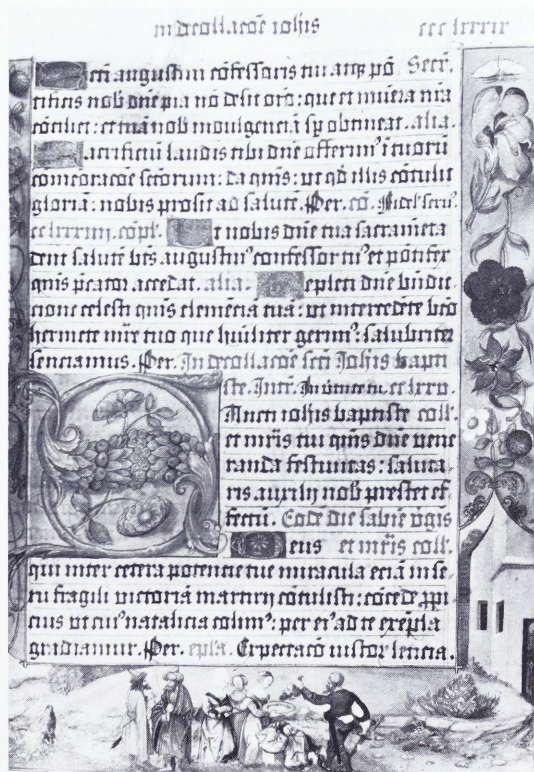 in decollacōe iohīs ccc lxxxix
Scti augustini cōfessoris tui atqȝ pō Secr̄.
tificis nob̄ dn̄e pia nō desit or̄o: que et mun̄era nr̄a
cōciliet: et tuā nob̄ indulgenciā sp̄ obtineat. alia.
Sacrificiū laudis tibi dn̄e offerimꝰ ī tuorū
cōmeōracōe sctōrum: da qs̄: ut qd̄ illis cōtulit
gloriā: nobis prosit ad salutē. Per. cō. Fidelˀ seruꝰ
cc lxxxiiij. cōpl̄. Ut nobis dn̄e tua sacramēta
dent salutē bt̄s. augustinꝰ confessor tuꝰ et pōtifex
qs̄ p̄cator accedat. alia. Repleti dn̄e bn̄dic
cione celesti qs̄ clemēciā tuā: ut intercedēte bt̄o
hermete mr̄e tuo que hūiliter gerimꝰ: salubriter
senciamus. Per. In decollacōe sct̄i Ioh̄is bapti
ste. Intr̄. In uirtute tu. cc lxxx
Sancti ioh̄is baptiste coll̄.
et mr̄is tui qs̄ dn̄e vene
randa festiuitas: saluta
ris auxilij nob̄ prestet ef
fectū. Eodē die sabīe v̄gīs
Deus et mr̄is coll̄.
qui inter cetera potentie tue miracula eciā in se
xu fragili victoriā martirij cōtulisti: cōcede p̄pi
cius ut cuiꝰ natalicia colimꝰ: per eiꝰ ad te exēpla
gradiamur. Per. epl̄a. Expectacō iustor̄ leticia.